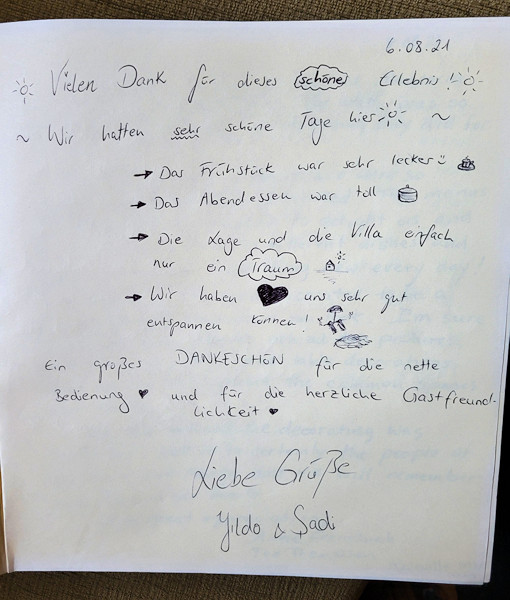 6.08.21
Vielen Dank für dieses schöne Erlebnis!
~ Wir hatten sehr schöne Tage hier ~
→ Das Frühstück war sehr lecker :)
→ Das Abendessen war toll
→ Die Lage und die Villa einfach
nur ein Traum
→ Wir haben ♥ uns sehr gut
entspannen können!
Ein großes DANKESCHÖN für die nette
Bedienung ♥ und für die herzliche Gastfreund-
lichkeit ♥
Liebe Grüße
Yildo & Sadi